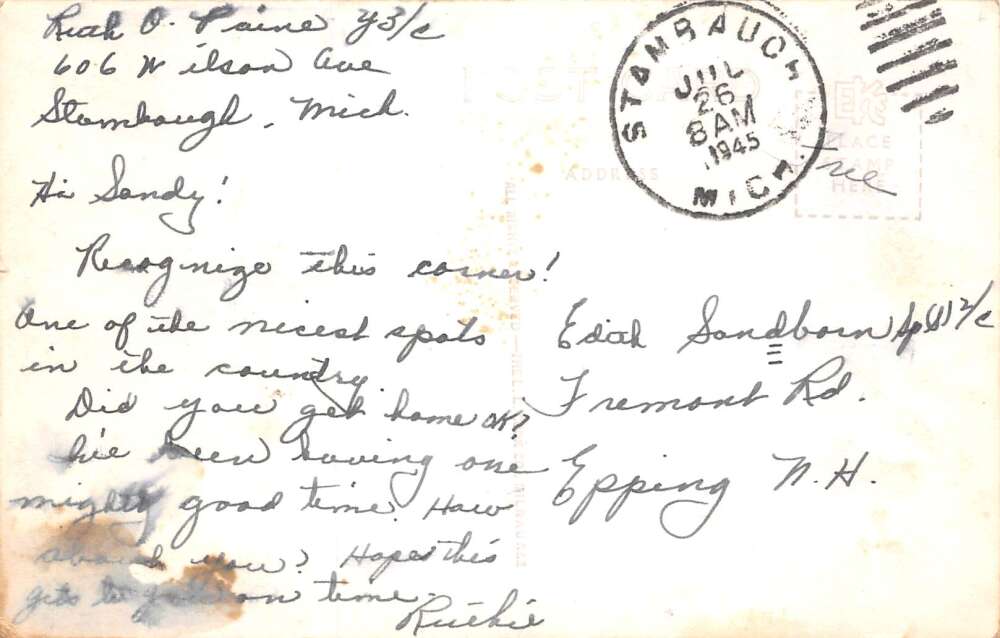 Ruth O. Paine Y3/c
606 Wilson Ave
Stambaugh, Mich.
STAMBAUGH
JUL
26
8 AM
1945
MICH.
Free
POST CARD
ADDRESS
EKC
PLACE
STAMP
HERE
Hi Sandy!
Recognize this corner!
One of the nicest spots
in the country
Did you get home OK?
I've been having one
mighty good time. How
about you? Hope this
gets to you on time.
Ruthie
Edith Sandborn Sp(S)2/c
Fremont Rd.
Epping N.H.